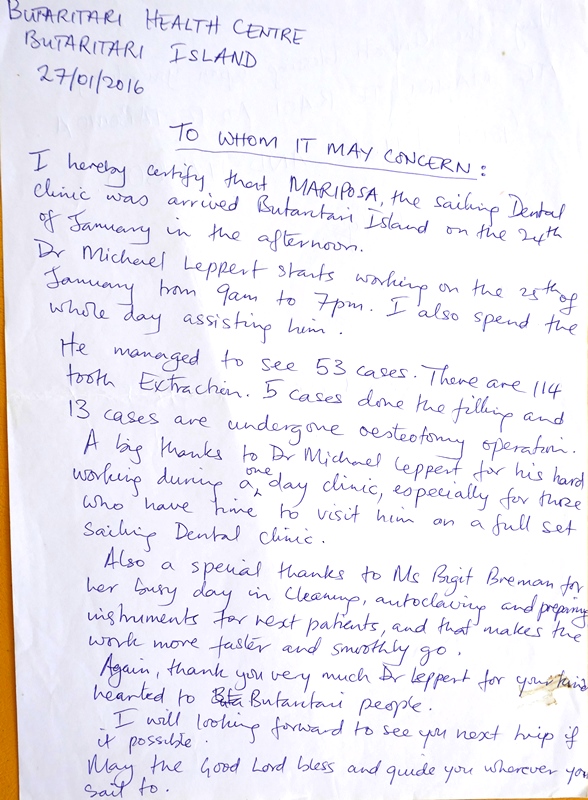 BUTARITARI HEALTH CENTRE
BUTARITARI ISLAND
27/01/2016
TO WHOM IT MAY CONCERN:
I hereby certify that MARIPOSA, the sailing Dental
clinic was arrived Butaritari Island on the 24th
of January in the afternoon.
Dr Michael Leppert starts working on the 25th of
January from 9am to 7pm. I also spend the
whole day assisting him.
He managed to see 53 cases. There are 114
tooth Extraction. 5 cases done the filling and
13 cases are undergone oesteotomy operation.
A big thanks to Dr Michael Leppert for his hard
working during a one day clinic, especially for those
who have time to visit him on a full set
Sailing Dental clinic.
Also a special thanks to Ms Bigit Breman for
her busy day in cleaning, autoclaving and preparing
instruments for next patients, and that makes the
work more faster and smoothly go.
Again, thank you very much Dr Leppert for your kind
hearted to Butaritari people.
I will looking forward to see you next trip if
it possible.
May the Good Lord bless and guide you wherever you
sail to.